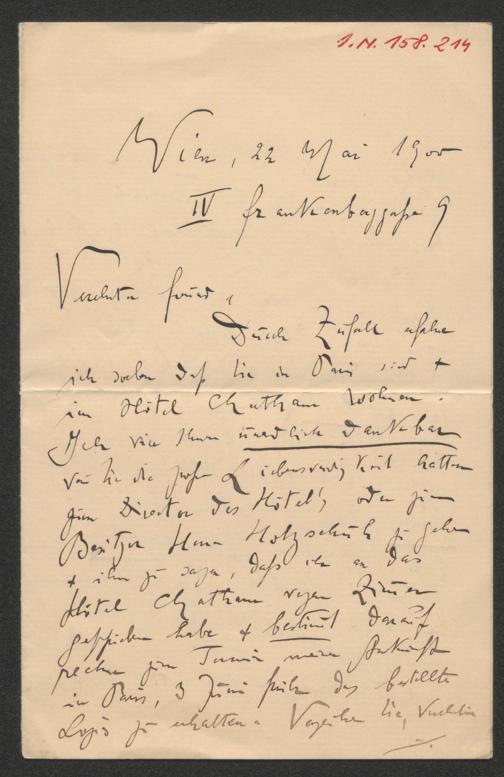 I.N. 158.214
Wien, 22 Mai 1900
IV Frankenberggasse 9
Verehrter Freund,
Durch Zufall erfahre
ich soeben daß Sie in Paris sind +
im Hôtel Chatham wohnen.
Ich wäre Ihnen unendlich dankbar
wenn Sie die große Liebenswürdigkeit hätten
zum Director des Hôtel's oder zum
Besitzer Herrn Holzschuh zu gehen
+ ihm zu sagen, daß ich an das
Hôtel Chatham wegen Zimmer
geschrieben habe + bestimt darauf
rechne zum Termin meiner Ankunft
in Paris, 3 Juni früh das bestellte
Logis zu erhalten. Verzeihen Sie, Verehrter